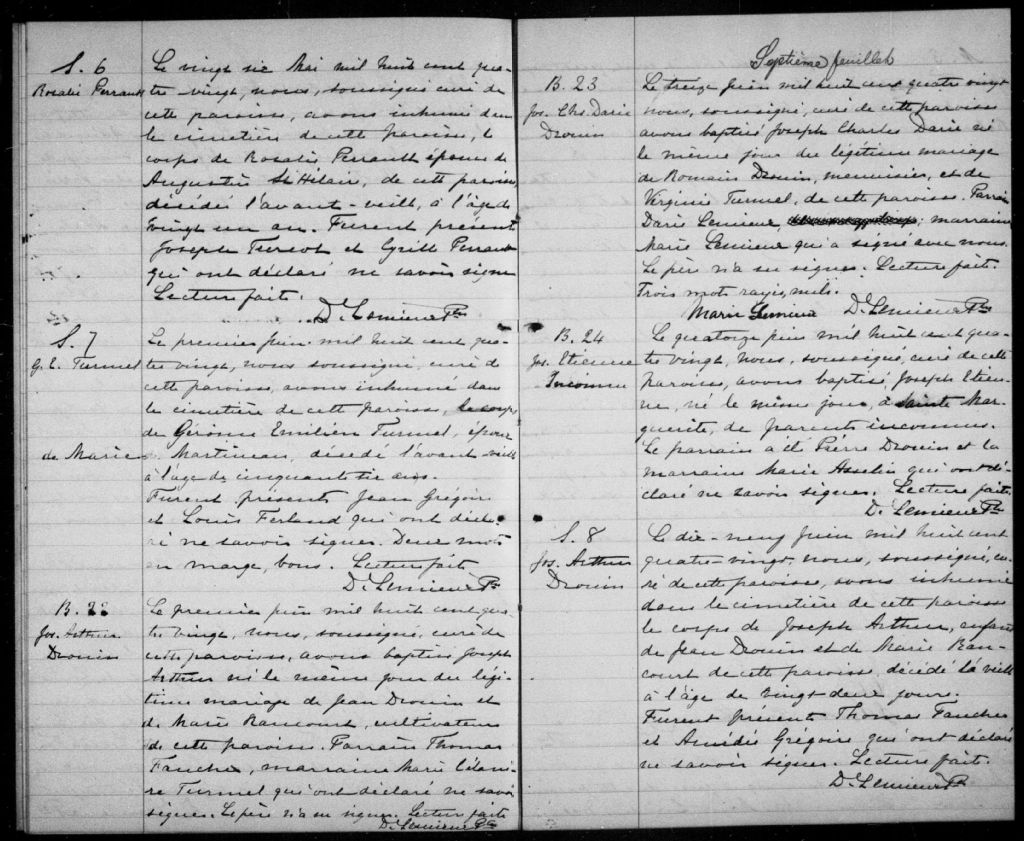 S. 6
Rosalie Perrault
Le vingt six Mai mil huit cent qua-
tre vingt, nous, soussigné curé de
cette paroisse, avons inhumé dans
le cimetière de cette paroisse, le
corps de Rosalie Perrault épouse de
Augustin St Hilair, de cette paroisse,
décédée l'avant-veille, à l'âge de
vingt un an. Furent présent
Joseph Turcot et Cyrill Perault
qui ont déclaré ne savoir signer
Lecture faite.
D. Lemieux Ptre
S. 7
G. E. Turmel
Le premier juin mil huit cent qua-
tre vingt, nous soussigné, curé de
cette paroisse, avons inhumé dans
le cimetière de cette paroisse, le corps
de Gérôme Emilien Turmel, époux
de Marie Martineau, décédé l'avant veille
à l'âge de cinquante six ans.
Furent présents Jean Grégoire
et Louis Ferland qui ont décla-
ré ne savoir signer. Deux mots
en marge, bons. Lecture faite
D. Lemieux Ptre
B. 22
Jos. Arthur
Drouin
Le premier juin mil huit cent qua-
tre vingt, nous, soussigné, curé de
cette paroisse, avons baptisé Joseph
Arthur né le même jour du légi-
time mariage de Jean Drouin et
de Marie Rancourt, cultivateur
de cette paroisse. Parrain Thomas
Fauche, marraine Marie Célani-
re Turmel qui ont déclaré ne savoir
signer. Le père n'a su signer. Lecture faite
D. Lemieux Ptre
Septième feuillet
B. 23
Jos. Chs. Darie
Drouin
Le treize juin mil huit cent quatre vingt
nous, soussigné, curé de cette paroisse
avons baptisé Joseph Charles Darie né
le même jour du légitime mariage
de Romain Drouin, menuisier, et de
Virginie Turmel, de cette paroisse. Parrain
Darie Lemieux, marraine
Marie Lemieux qui a signé avec nous.
Le père n'a su signer. Lecture faite.
Trois mots rayés, nuls.
Marie Lemieux D. Lemieux Ptre
B. 24
Jos. Etienne
Inconnu
Le quatorze juin mil huit cent qua-
tre vingt, nous, soussigné, curé de cette
paroisse, avons baptisé Joseph Etien-
ne, né le même jour, à Sainte Mar-
guerite, de parents inconnus.
Le parrain a été Pierre Drouin et la
marraine Marie Asselin qui ont dé-
claré ne savoir signer. Lecture faite
D. Lemieux Ptre
S. 8
Jos. Arthur
Drouin
Le dix-neuf Juin mil huit cent
quatre-vingt, nous, soussigné, cu-
ré de cette paroisse, avons inhumé
dans le cimetière de cette paroisse
le corps de Joseph Arthur, enfant
de Jean Drouin et de Marie Ran-
court de cette paroisse décédé la veille
à l'âge de vingt-deux jours.
Furent présents Thomas Fauche
et Amédée Grégoire qui ont déclaré
ne savoir signer. Lecture faite.
D. Lemieux Ptre